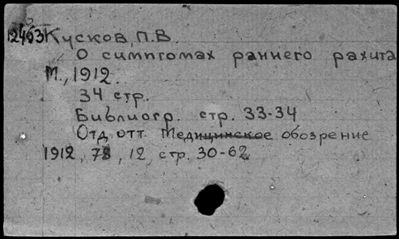 12463 Кусков, П.В.
О симптомах раннего рахита
М., 1912.
34 стр.
Библиогр. стр. 33-34
Отд. отт. Медицинское обозрение
1912, 78, 12, стр. 30-62